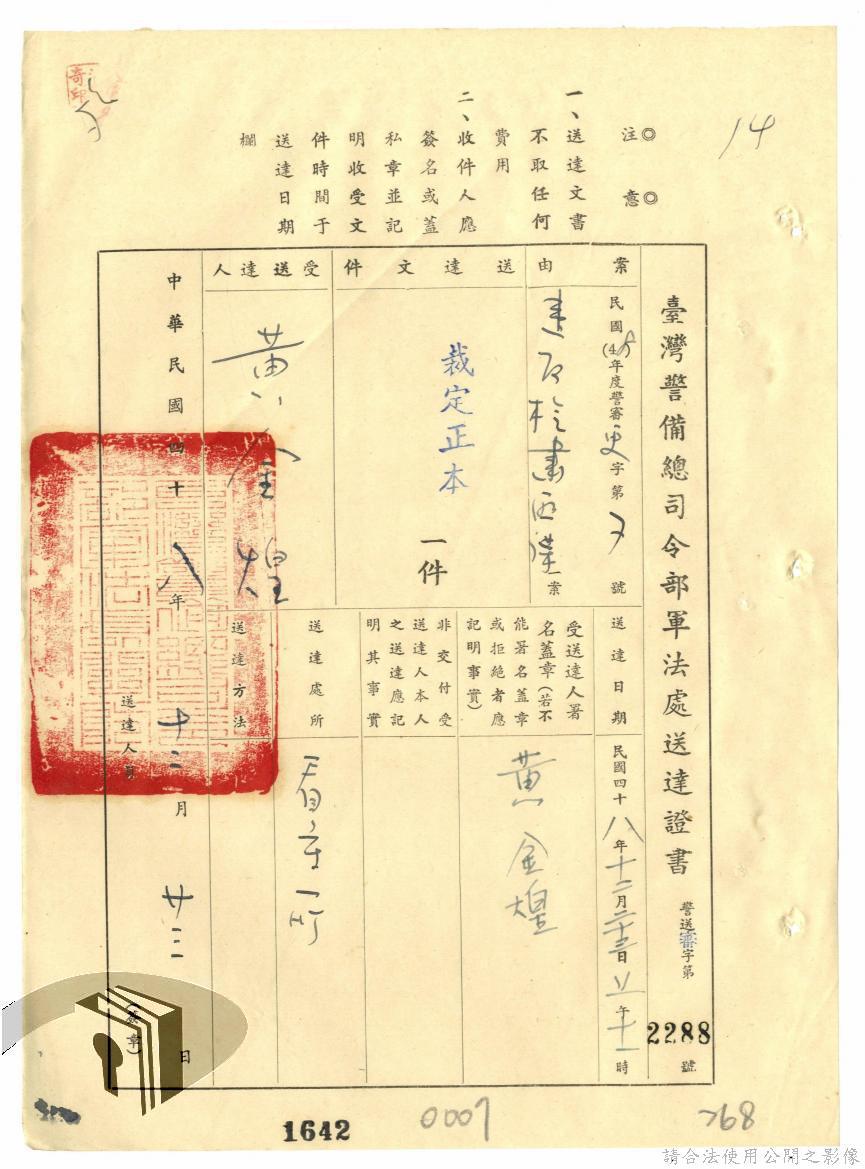 14
◎注意◎
一、送達文書
不取任何
費用
二、收件人應
簽名或蓋
私章並記
明收受文
件時間于
送達日期
欄
臺灣警備總司令部軍法處送達證書
警送審字第2288號
案由
民國(48)年度警審更字第 號
案
送達文件
裁定正本
一件
受送達人
黃金煌
送達日期
民國四十八年十二月二十三日上午十一時
受送達人署
名蓋章(若不
能署名蓋章
或拒絕者應
記明事實)
黃金煌
非交付受
送達人本人
之送達應記
明其事實
送達處所
看守所
送達方法
中華民國四十八年十二月廿三日
送達人員
(簽章)
奇印
1642
0007
268
請合法使用公開之影像